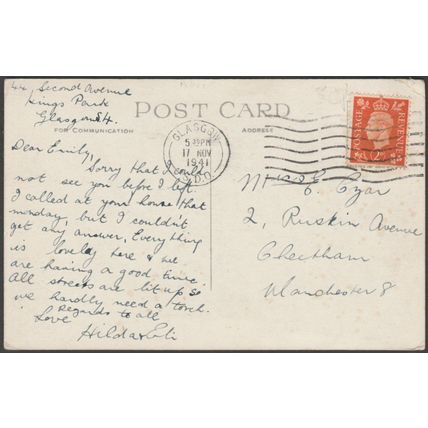 44 Second Avenue
Kings Park
Glasgow S4.
POST CARD
FOR COMMUNICATION
ADDRESS
GLASGOW
5 PM
17 NOV
1941
POSTAGE
REVENUE
2D
Dear Emily,
Sorry that I could
not see you before I left.
I called at your house that
monday, but I couldn't
get any answer. Everything
is lovely here & we
are having a good time.
All streets are lit up so
we hardly need a torch.
Regards to all
Love
Hilda &
Mrs E. Czar
2, Ruskin Avenue
Cheetham
Manchester 8